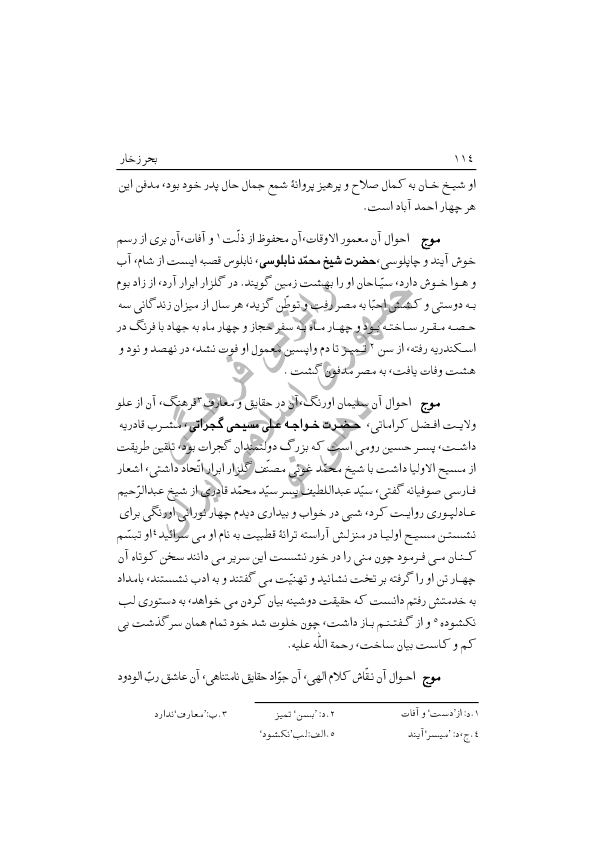 ١١٤ بحر زخار
او شیخ خان به کمال صلاح و پرهیز پروانهٔ شمع جمال حال پدر خود بود، مدفن این
هر چهار احمد آباد است.
موج احوال آن معمور الاوقات،آن محفوظ از ذلّت١ و آفات،آن بری از رسم
خوش آیند و چاپلوسی،حضرت شیخ محمّد نابلوسی، نابلوس قصبه ایست از شام، آب
و هوا خوش دارد، سیّاحان او را بهشت زمین گویند. در گلزار ابرار آرد، از زاد بوم
به دوستی و کشش احبّا به مصر رفت و توطّن گزید، هر سال از میزان زندگانی سه
حصه مقرر ساخته بود و چهار ماه به سفر حجاز و چهار ماه به جهاد با فرنگ در
اسکندریه رفته، از سن٢ تمیز تا دم واپسین معمول او فوت نشد، در نهصد و نود و
هشت وفات یافت، به مصر مدفون گشت .
موج احوال آن سلیمان اورنگ،آن در حقایق و معارف٣فرهنگ، آن از علو
ولایت افضل کراماتی، حضرت خواجه علی مسیحی گجراتی، مشرب قادریه
داشت، پسر حسین رومی است که بزرگ دولتمندان گجرات بود، تلقین طریقت
از مسیح الاولیا داشت با شیخ محمّد غوثی مصنّف گلزار ابرار اتّحاد داشتی، اشعار
فارسی صوفیانه گفتی، سیّد عبداللطیف پسر سیّد محمّد قادری از شیخ عبدالرّحیم
عادلپوری روایت کرد، شبی در خواب و بیداری دیدم چهار نورانی اورنگی برای
نشستن مسیح اولیا در منزلش آراسته ترانهٔ قطبیت به نام او می سرائید٤او تبسّم
کنان می فرمود چون منی را در خور نشست این سریر می دانند سخن کوتاه آن
چهار تن او را گرفته بر تخت نشانید و تهنیّت می گفتند و به ادب نشستند، بامداد
به خدمتش رفتم دانست که حقیقت دوشینه بیان کردن می خواهد، به دستوری لب
نکشوده٥ و از گفتنم باز داشت، چون خلوت شد خود تمام همان سرگذشت بی
کم و کاست بیان ساخت، رحمة الله علیه.
موج احوال آن نقّاش کلام الهی، آن جوّاد حقایق نامتناهی، آن عاشق ربّ الودود
١.د: از'دست' و آفات ٢.د: 'بسن' تمیز ٣.ب:'معارف'ندارد
٤.ج،د: 'میسر'آیند ٥.الف:لب'نکشود'
رایزنی فرهنگی
جمهوری اسلامی ایران
دهلی نو